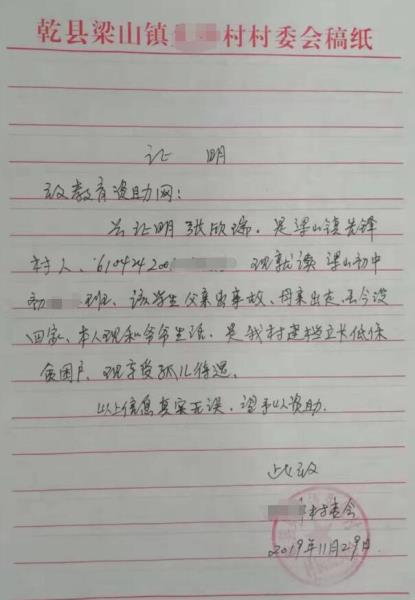 乾县梁山镇村村委会稿纸
证 明
致教育资助网:
兹证明张欣瑞,是梁山镇先锋
村人,610424200 现就读梁山初中
初 班,该学生父亲出事故、母亲出走至今没
回家,本人现和爷爷生活,是我村建档立卡低保
贫困户,现享受孤儿待遇。
以上信息真实无误,望予以资助.
此致
村委会
2019年11月29日